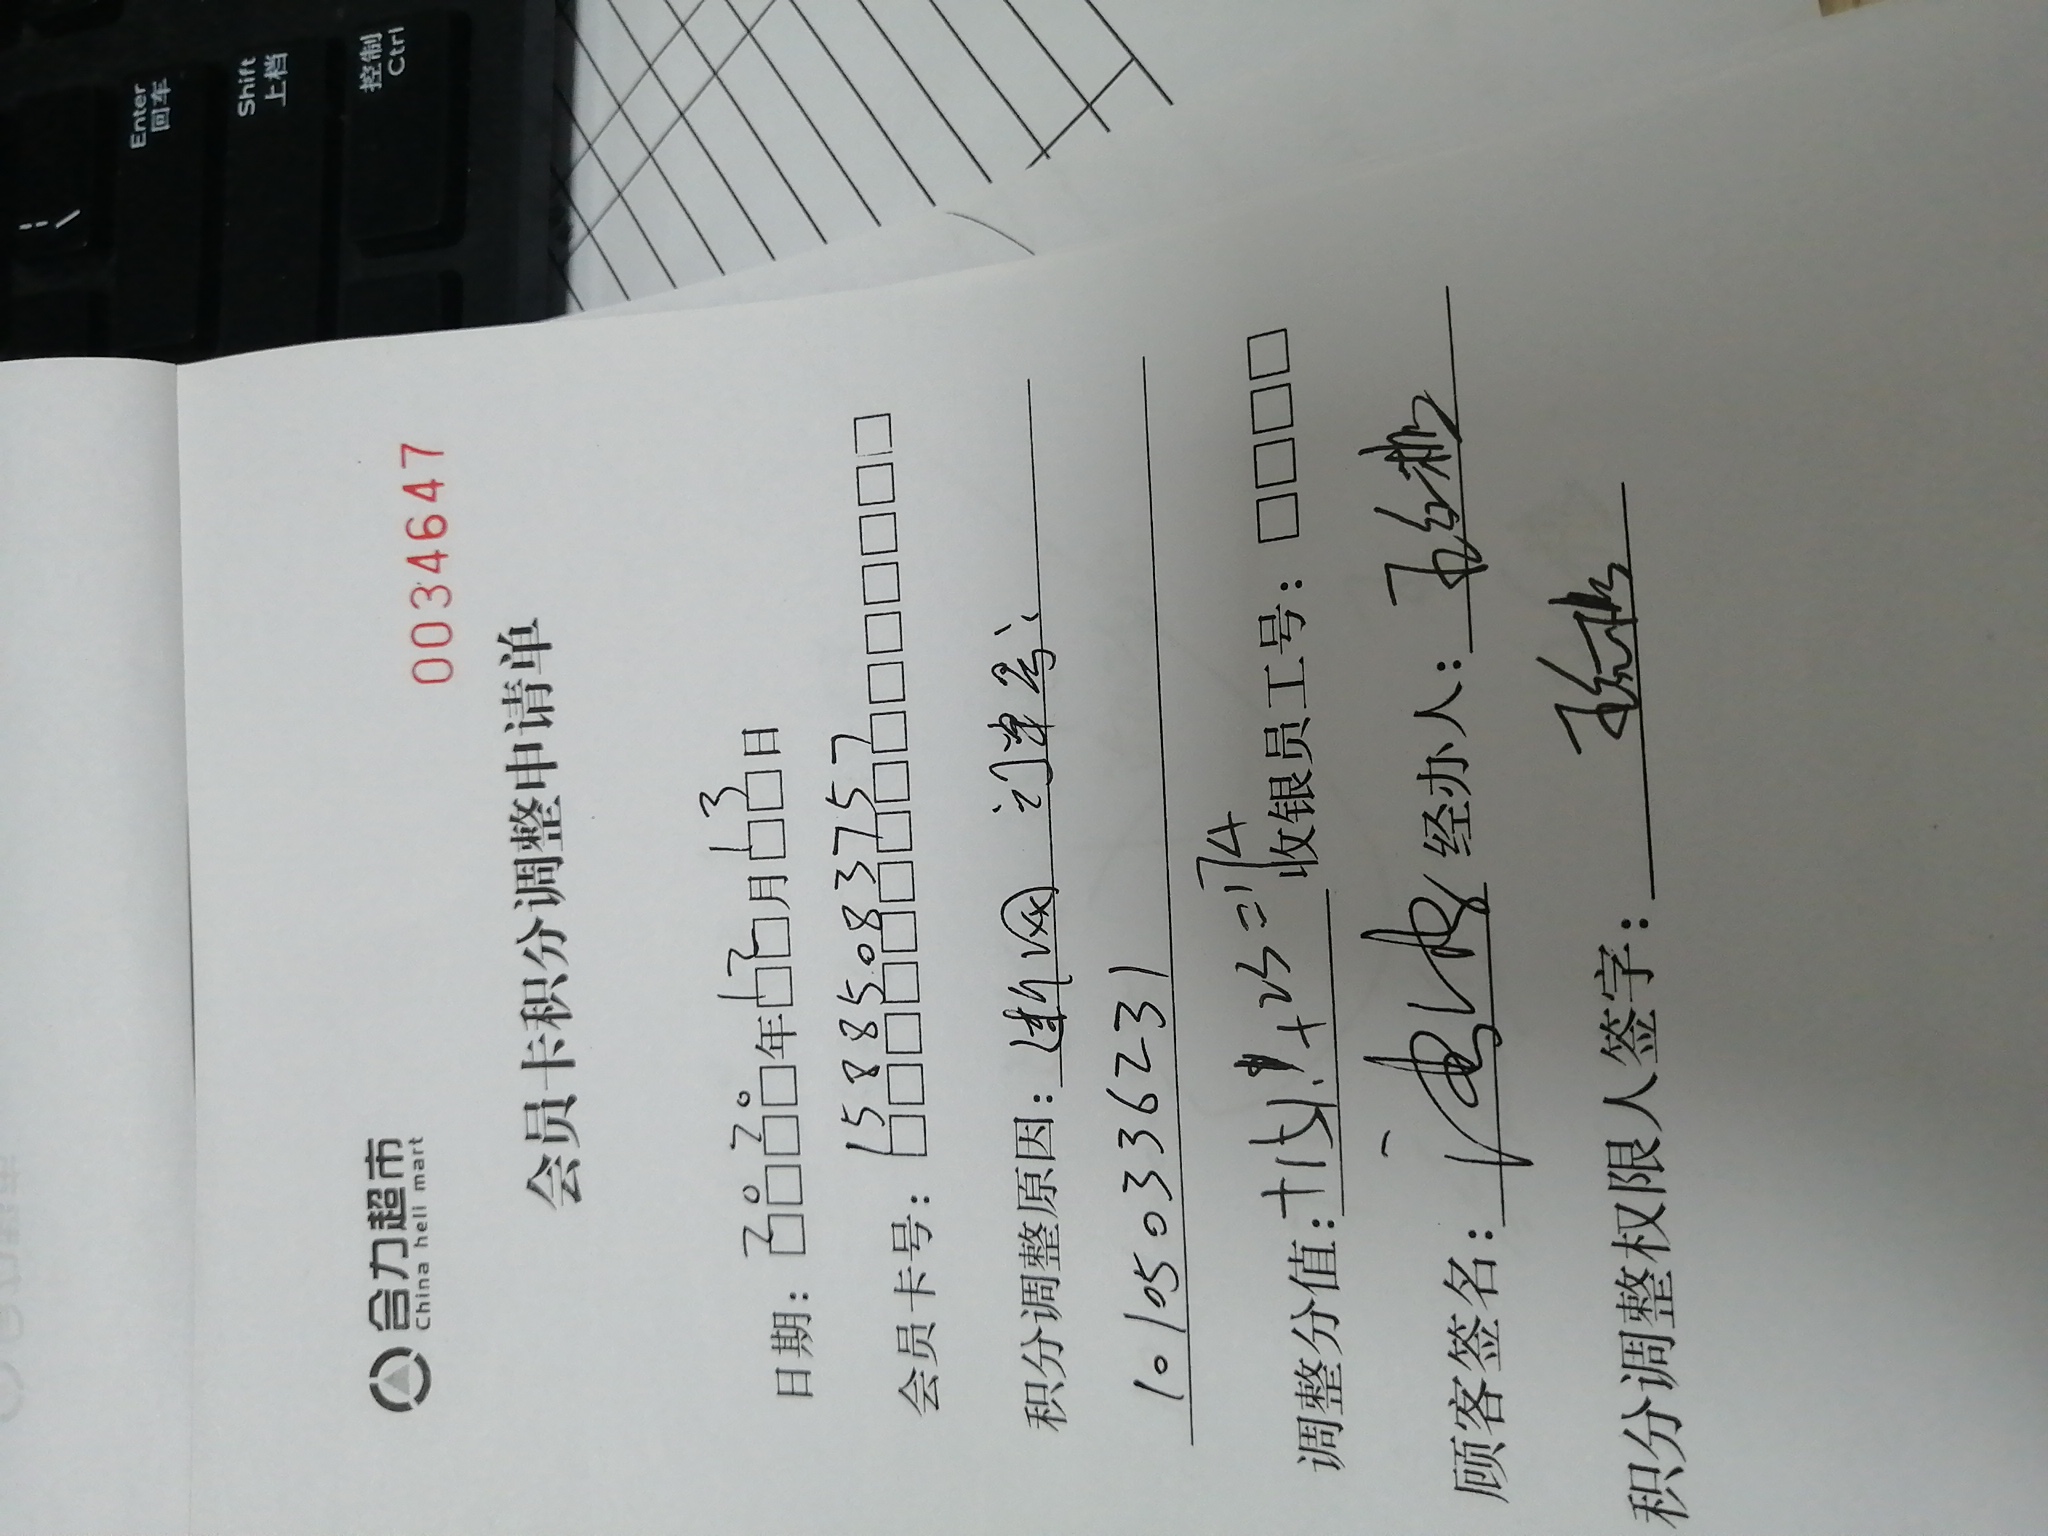 Enter
回车
Shift
上档
控制
Ctrl
合力超市
China heli mart
0034647
会员卡积分调整申请单
日期：2020年12月13日
会员卡号：15885083757
积分调整原因：断网 订单号：
10105033623​1
调整分值： 收银员工号：
顾客签名： 经办人：
积分调整权限人签字：